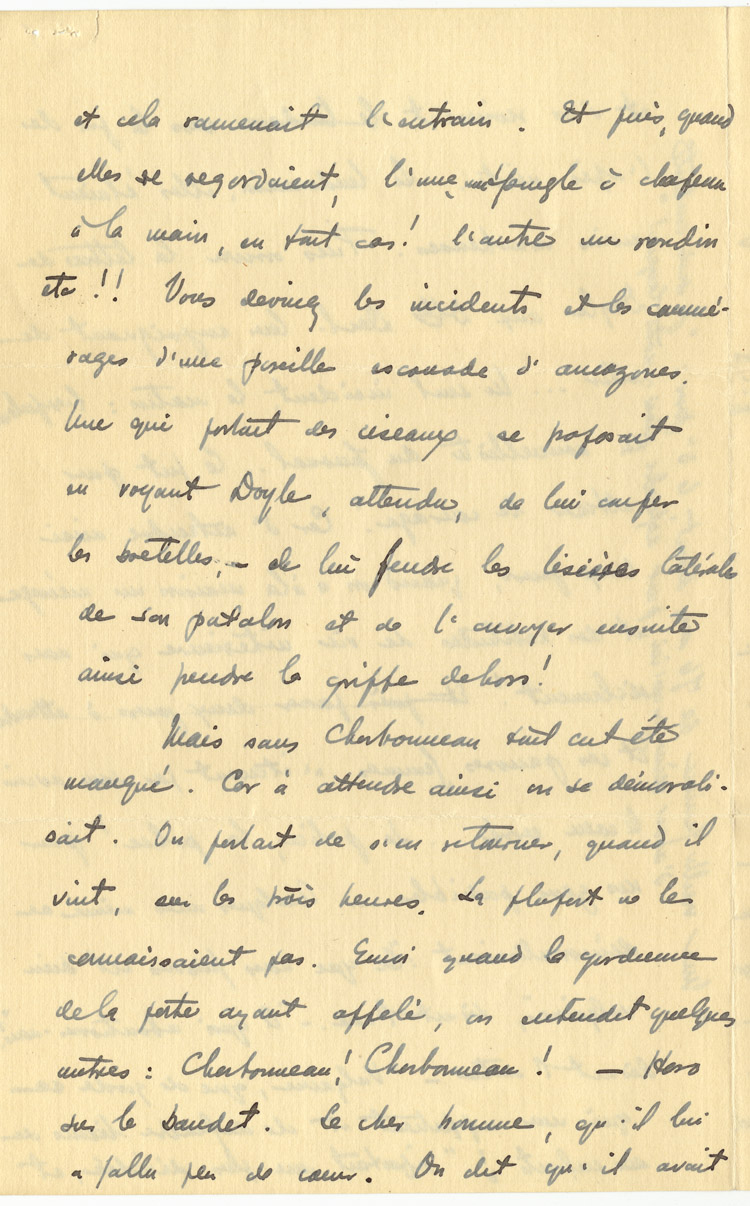 et cela ramenait l'entrain. Et puis, quand
elles se regardaient, l'une, une épingle à chapeau
à la main, en tout cas! l'autre un rondin
etc!! Vous devinez les incidents et les commé-
rages d'une pareille escouade d'amazones.
Une qui portait des ciseaux se proposait
en voyant Doyle, attendu, de lui couper
les bretelles, – de lui fendre les lisières latérales
de son patalon et de l'envoyer ensuite
ainsi pendre la griffe dehors!
Mais sans Charbonneau tout eut été
manqué. Car à attendre ainsi on se démorali-
sait. On parlait de s'en retourner, quand il
vint, sur les trois heures. La plupart ne le
connaissaient pas. Emoi quand la gardienne
de la porte ayant appelé, on entendit quelques
autres: Charbonneau! Charbonneau! – Haro
sur le baudet. Le cher homme, qu'il lui
a fallu peu de cœur. On dit qu'il avait